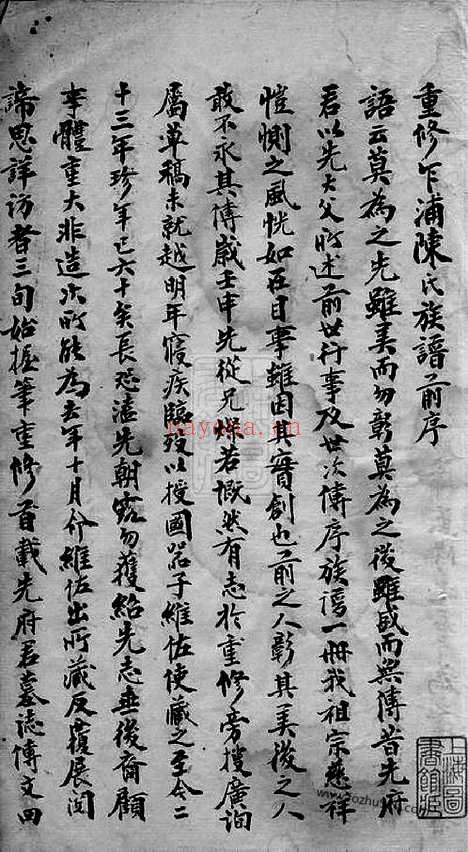 重修乍浦陳氏族譜前序
語云莫為之先雖美而勿彰莫為之後雖盛而無傳昔先府
君以先大父所述前世行事及世次傳序族譜一冊我祖宗慈祥
愷惻之風恍如在目事雖因其實創也前之人彰其美後之人
敢不永其傳歲壬申先從兄 若慨然有志於重修旁搜廣詢
屬草稿未就越明年寢疾臨歿以授國器子維佐使藏之至今二
十三年珍年已六十矣長恐溘先朝露勿獲紹先志垂後裔顧
事體重大非造次所能為去年十月介維佐出所藏反覆展閱
諦思詳訪者三旬始握筆重修首載先府君墓誌傳文四
上海圖書館藏